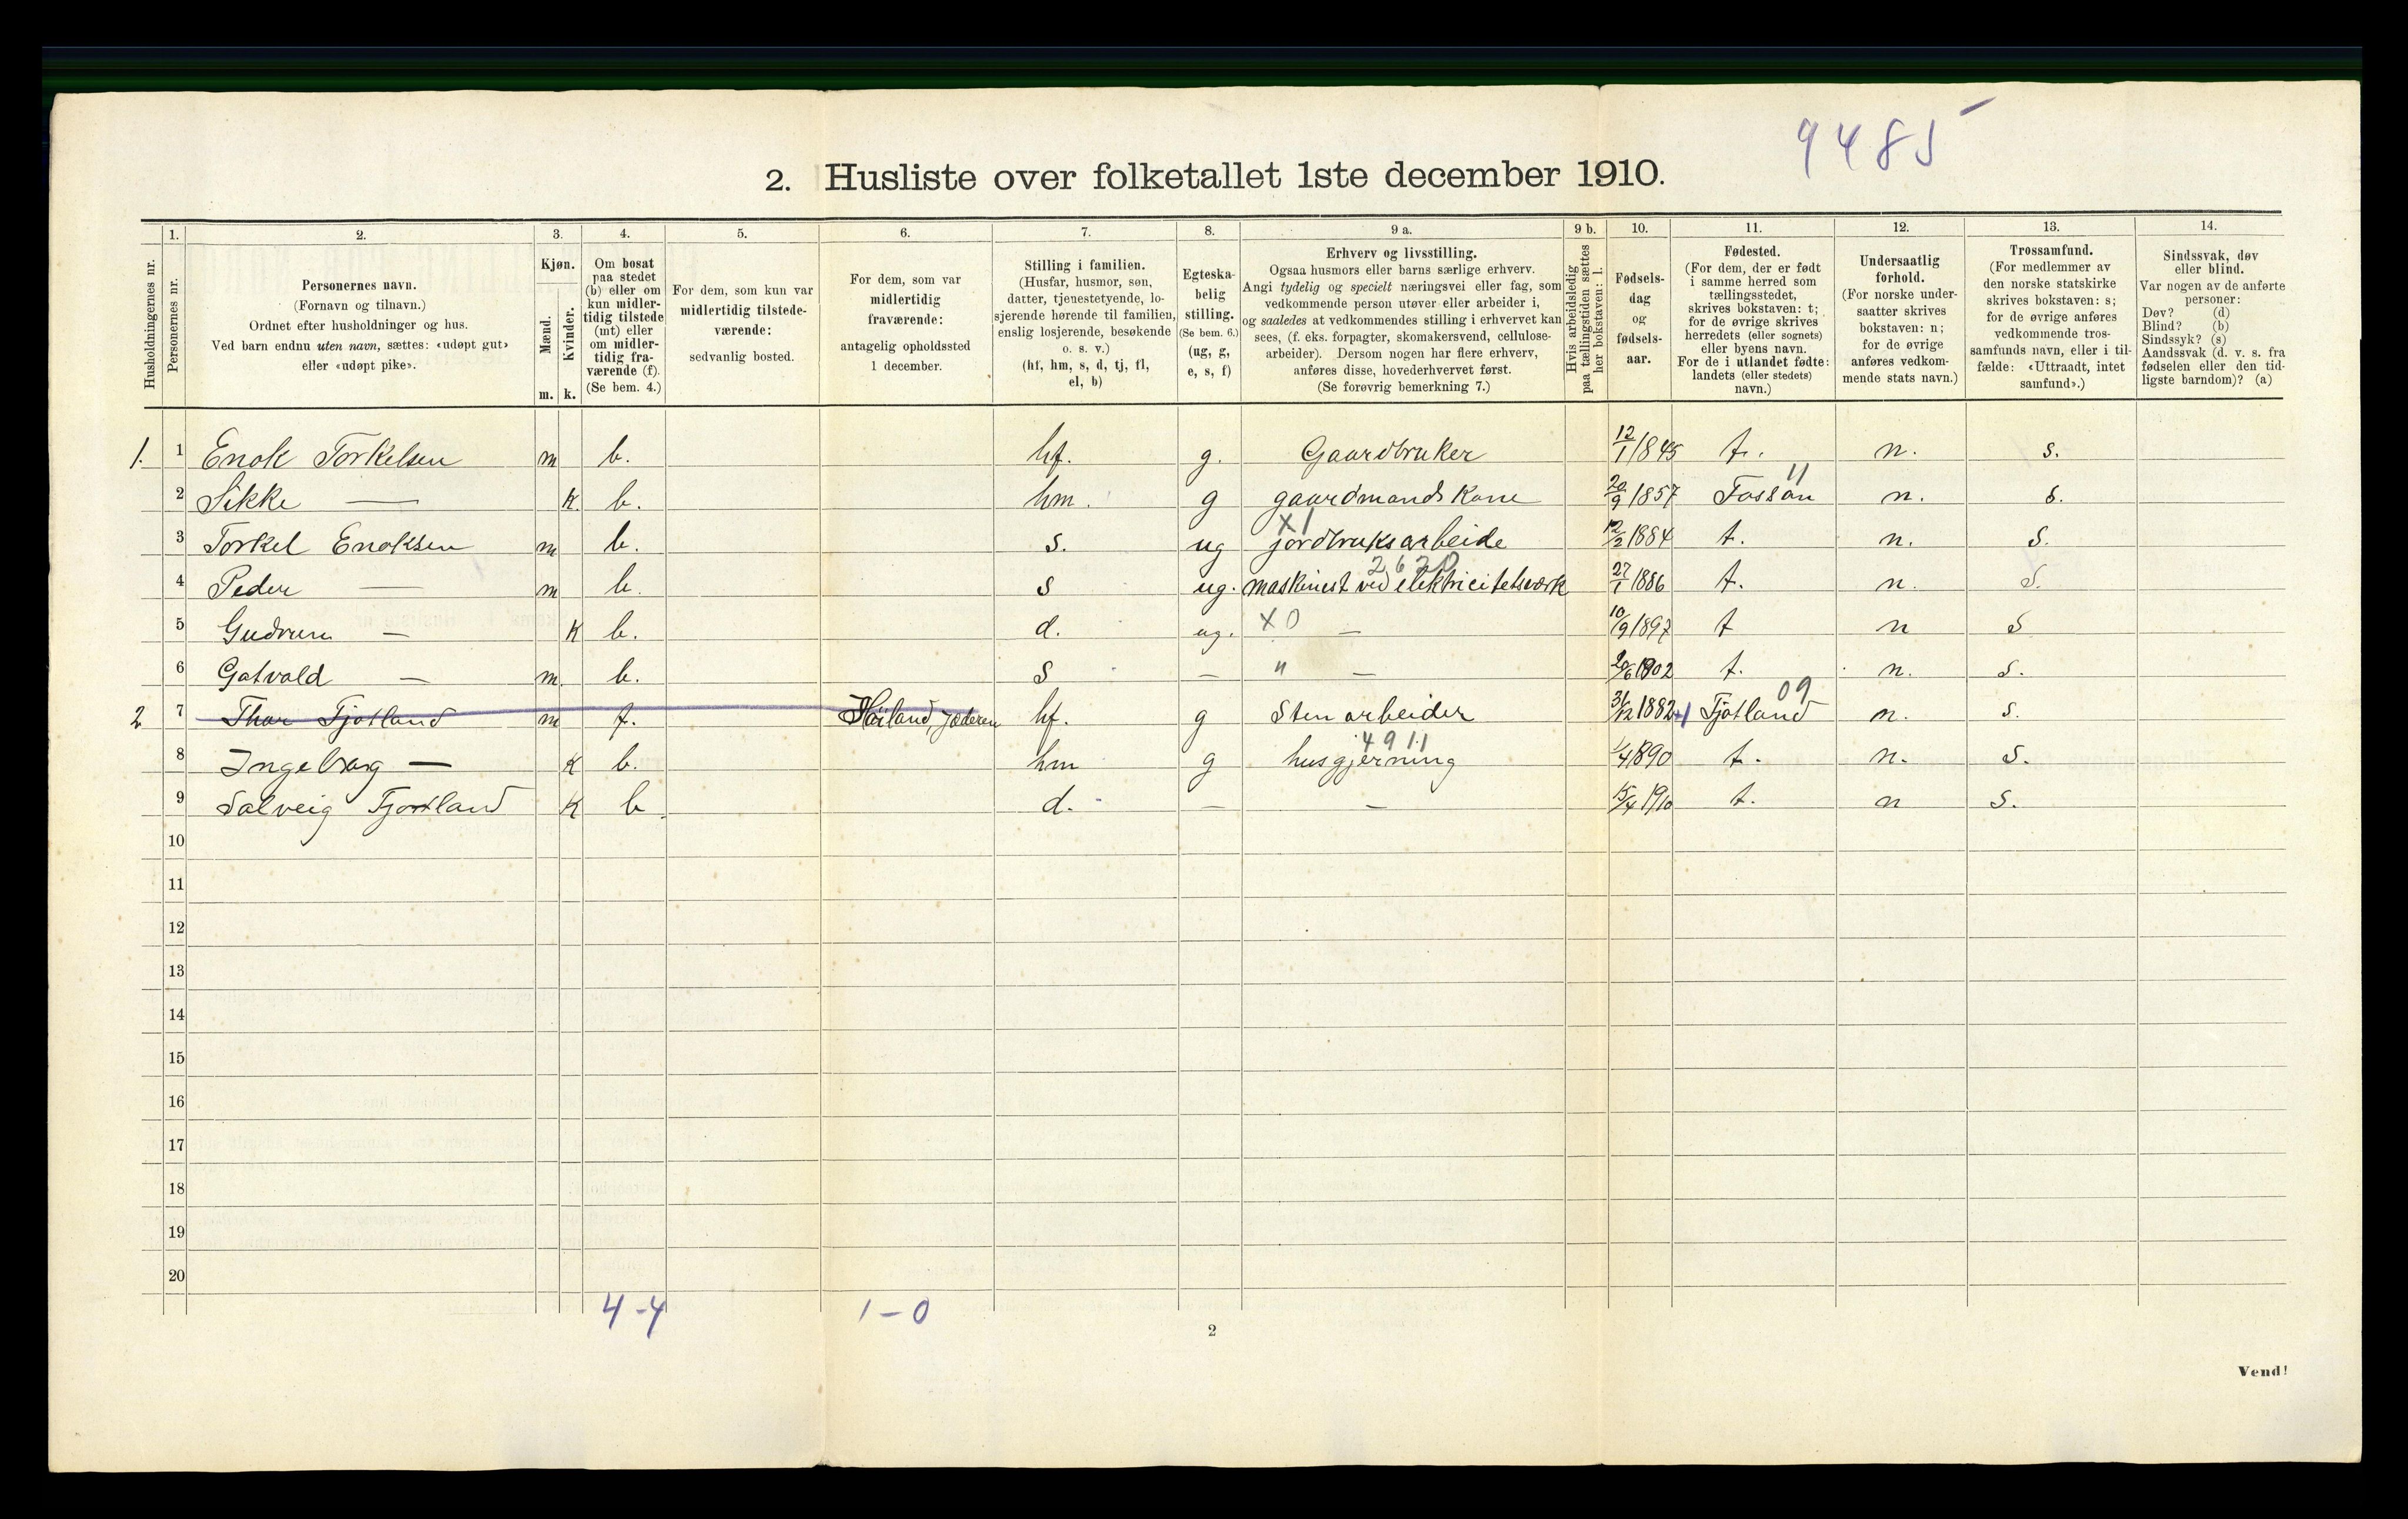 9485
2. Husliste over folketallet 1ste december 1910.
Husholdningernes nr.
1.
Personernes nr.
2.
Personernes navn.
(Fornavn og tilnavn.)
Ordnet efter husholdninger og hus.
Ved barn endnu uten navn, sættes: «udøpt gut»
eller «udøpt pike».
3.
Kjøn.
Mænd.
Kvinder.
m. k.
4.
Om bosat
paa stedet
(b) eller om
kun midler-
tidig tilstede
(mt) eller
om midler-
tidig fra-
værende (f).
(Se bem. 4.)
5.
For dem, som kun var
midlertidig tilstede-
værende:
sedvanlig bosted.
6.
For dem, som var
midlertidig
fraværende:
antagelig opholdssted
1 december.
7.
Stilling i familien.
(Husfar, husmor, søn,
datter, tjenestetyende, lo-
sjerende hørende til familien,
enslig losjerende, besøkende
o. s. v.)
(hf, hm, s, d, tj, fl,
el, b)
8.
Egteska-
belig
stilling.
(Se bem. 6.)
(ug, g,
e, s, f)
9 a.
Erhverv og livsstilling.
Ogsaa husmors eller barns særlige erhverv.
Angi tydelig og specielt næringsvei eller fag, som
vedkommende person utøver eller arbeider i,
og saaledes at vedkommendes stilling i erhvervet kan
sees, (f. eks. forpagter, skomakersvend, cellulose-
arbeider). Dersom nogen har flere erhverv,
anføres disse, hovederhvervet først.
(Se forøvrig bemerkning 7.)
9 b.
Hvis arbeidsledig
paa tællingstiden sættes
her bokstaven: l.
10.
Fødsels-
dag
og
fødsels-
aar.
11.
Fødested.
(For dem, der er født
i samme herred som
tællingsstedet,
skrives bokstaven: t;
for de øvrige skrives
herredets (eller sognets)
eller byens navn.
For de i utlandet fødte:
landets (eller stedets)
navn.)
12.
Undersaatlig
forhold.
(For norske under-
saatter skrives
bokstaven: n;
for de øvrige
anføres vedkom-
mende stats navn.)
13.
Trossamfund.
(For medlemmer av
den norske statskirke
skrives bokstaven: s;
for de øvrige anføres
vedkommende tros-
samfunds navn, eller i til-
fælde: «Uttraadt, intet
samfund».)
14.
Sindssvak, døv
eller blind.
Var nogen av de anførte
personer:
Døv? (d)
Blind? (b)
Sindssyk? (s)
Aandssvak (d. v. s. fra
fødselen eller den tid-
ligste barndom)? (a)
1. 1 Enok Torkelsen m b. hf. g. Gaardbruker 12/1 1845 t. n. s.
2 Sikke — k. b. hm. g gaardmands Kone 20/9 1857 Fossan 11 n. s.
3 Torkel Enoksen m b. s. ug X1 jordbruksarbeide 12/2 1884 t. n. s.
4 Peder — m b. s ug. 2620 maskinist ved elektricitetsværk 27/1 1886 t. n. s.
5 Gudrun — K b. d. ug. X0 — 10/9 1897 t n s
6 Gotvald — m. b. s — " — 20/6 1902 t. n. s.
2 7 Thor Tjotland m f. Høiland, Jæderen hf. g Stenarbeider 31/12 1882 +1 Tjotland 09 n. s.
8 Ingeborg — K b. hm g 4911 husgjerning 1/4 1890 t. n. s.
9 Solveig Tjotland K b d. — — 15/4 1910 t. n s.
10
11
12
13
14
15
16
17
18
19
20
4-4 1-0
2
Vend!